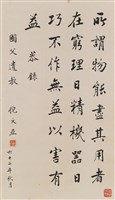 所謂物能盡其用者
在窮理日精機器日
巧不作無益以害有
益 恭錄
國父遺教 倪文亞